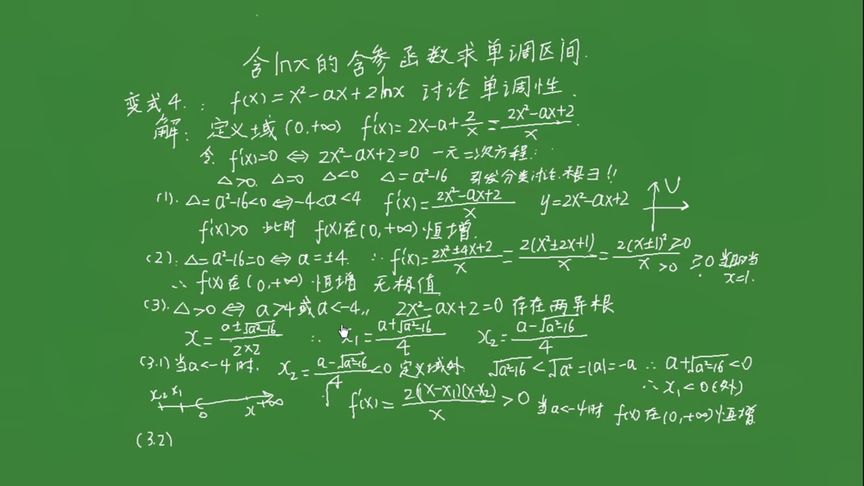 含lnx的含参函数求单调区间.
变式4.: f(x)=x²-ax+2lnx 讨论单调性.
解: 定义域(0,+∞) f'(x)=2x-a+2/x=(2x²-ax+2)/x
令 f'(x)=0 ⇔ 2x²-ax+2=0 一元二次方程:
△>0. △=0 △<0 △=a²-16 引发分类讨论.根∃!!
(1). △=a²-16<0⇔-4<a<4 f'(x)=(2x²-ax+2)/x y=2x²-ax+2
f'(x)>0 此时 f(x)在(0,+∞)恒增.
(2). △=a²-16=0⇔a=±4. ∴ f'(x)=(2x²±4x+2)/x=2(x²±2x+1)/x=2(x±1)²≥0/x>0 ≥0 当且当 x=1.
∴ f(x)在(0,+∞)恒增 无极值
(3). △>0⇔a>4或a<-4,, 2x²-ax+2=0存在两异根
x=(a±√(a²-16))/(2×2) ∴ x₁=(a+√(a²-16))/4 x₂=(a-√(a²-16))/4
(3.1)当a<-4时. x₂=(a-√(a²-16))/4<0 定义域外. √(a²-16)<√a²=|a|=-a ∴ a+√(a²-16)<0
∴ x₁<0(外)
x₂ x₁ 0 x +∞
f'(x)=2(x-x₁)(x-x₂)/x>0 当a<-4时 f(x)在(0,+∞)恒增
(3.2)